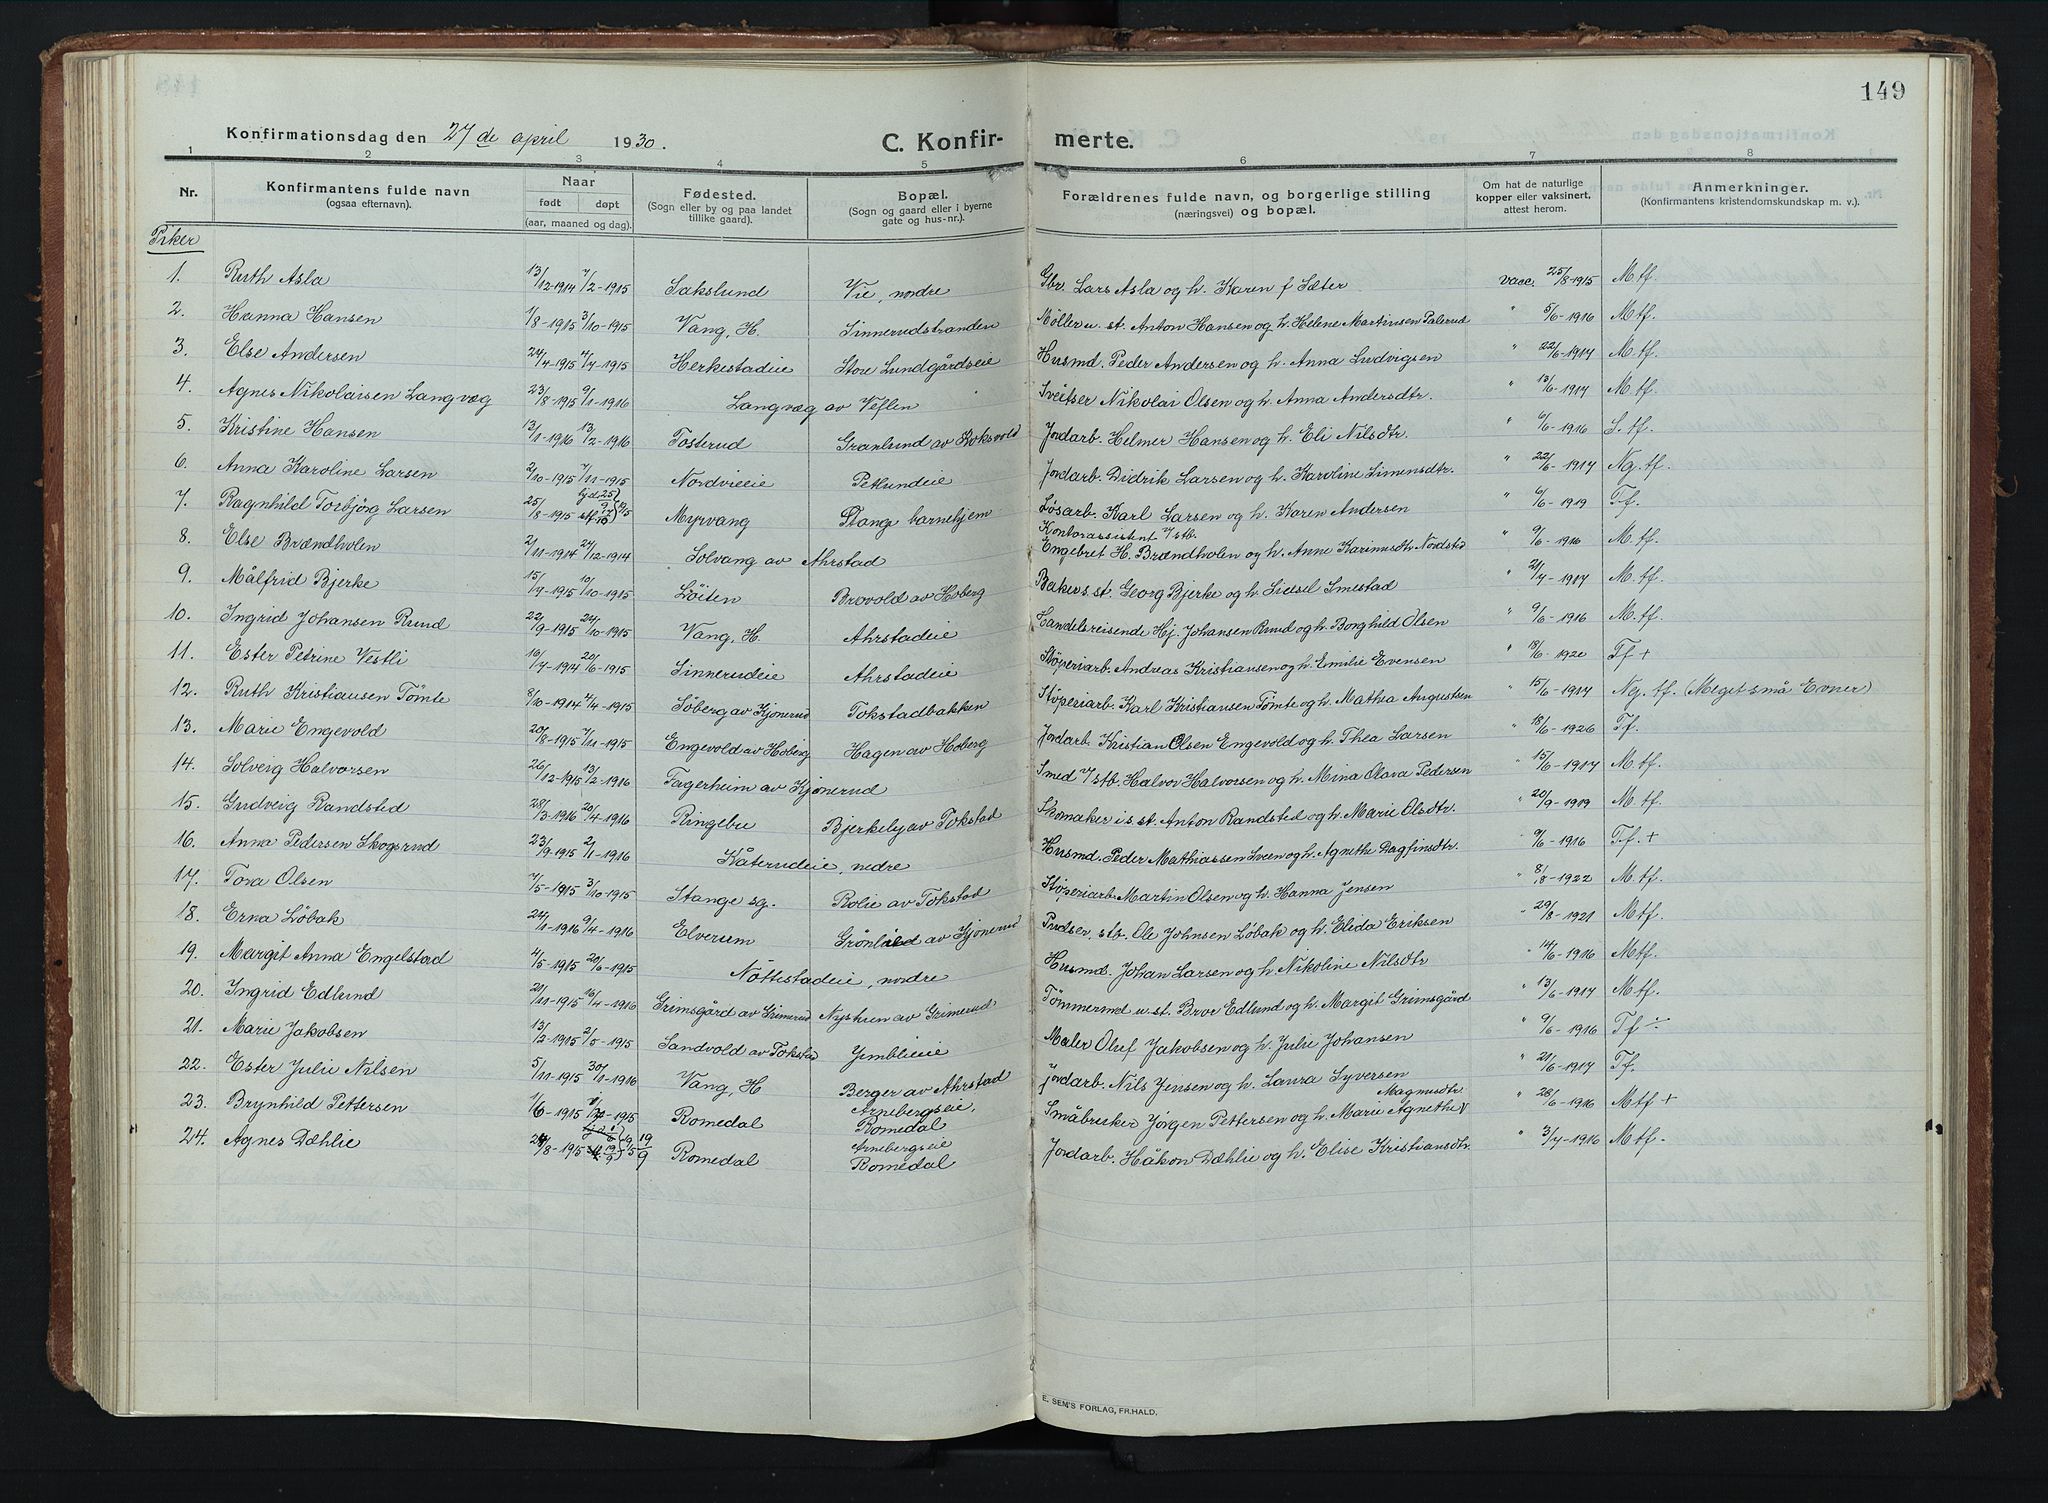 149
Konfirmationsdag den 27 de april 1930.
C. Konfir- merte.
1 2 3 4 5 6 7 8
Nr.
Konfirmantens fulde navn
(ogsaa efternavn).
Naar
født døpt
(aar, maaned og dag).
Fødested.
(Sogn eller by og paa landet
tillike gaard).
Bopæl.
(Sogn og gaard eller i byerne
gate og hus-nr.).
Forældrenes fulde navn, og borgerlige stilling
(næringsvei) og bopæl.
Om hat de naturlige
kopper eller vaksinert,
attest herom.
Anmerkninger.
(Konfirmantens kristendomskundskap m. v.).
Piker
1. Ruth Asla 13/12-1914 7/2-1915 Sakslund Vie, nordre Gbr. Lars Asla og h. Karen f Sæter vacc. 25/8-1915 M.tf.
2. Hanna Hansen 1/8-1915 3/10-1915 Vang, H. Sinnerudstranden Møller u. st. Anton Hansen og h. Helene Martinsen Palerud " 5/6-1916 Mtf.
3. Else Andersen 24/4-1915 4/7-1915 Herkestadeie Store Lundgårdseie Husmd. Peder Andersen og h. Anna Ludvigsen " 22/6-1917 M.tf.
4. Agnes Nikolaisen Langvæg 23/8-1915 9/1-1916 Langvæg av Veflen Sveitser Nikolai Olsen og h. Anna Andersdtr. " 13/6-1917 M.tf.
5. Kristine Hansen 13/1-1916 13/2-1916 Tosterud Granlund av Koksvold Jordarb. Helmer Hansen og h. Eli Nilsdtr. " 6/6-1916 S.tf.
6. Anna Karoline Larsen 2/10-1915 7/11-1915 Nordvieeie Petlundeie Jordarb. Didrik Larsen og h. Karoline Simensdtr. " 22/6-1917 Ng.tf.
7. Ragnhild Torbjørg Larsen 25/8-1915 Myrvang Stange barnehjem Løsarb. Karl Larsen og h. Karen Andersen " 6/6-1919 Tf.
8. Else Brændholen 2/11-1914 27/12-1914 Solvang av Ahrstad Kontorassistent v/stb.
Engebret H. Brændholen og h. Anne Karinusdtr Nordsted " 9/6-1916 M.tf.
9. Målfrid Bjerke 15/7-1915 10/10-1915 Løiten Brovold av Hoberg Baker s. st. Georg Bjerke og h. Sissel Smestad " 21/7-1917 M.tf.
10. Ingrid Johansen Ruud 22/9-1915 24/10-1915 Vang, H. Ahrstadeie Handelsreisende Hj. Johansen Ruud og h. Borghild Olsen " 9/6-1916 M.tf.
11. Ester Petrine Vestli 16/7-1914 20/6-1915 Sinnerudeie Ahrstadeie Støperiarb. Andreas Kristiansen og h. Emilie Evensen " 18/6-1920 Tf +
12. Ruth Kristiansen Tømte 8/10-1914 4/4-1915 Søberg av Kjonerud Tokstadbakken Støperiarb. Karl Kristiansen Tømte og h. Mathea Augustsen " 15/6-1917 Ng. tf. (Meget små Evner)
13. Marie Engevold 20/8-1915 7/11-1915 Engevold av Hoberg Hagen av Hoberg Jordarb. Kristian Olsen Engevold og h. Thea Larsen " 18/6-1926 Tf.
14. Solveig Halvorsen 26/12-1915 13/2-1916 Fagerheim av Kjonerud Smed v/stb. Halvor Halvorsen og h. Mina Olava Pedersen " 15/6-1917 M.tf.
15. Gudveig Randsted 28/3-1916 20/4-1916 Ringebu Bjerkely av Tokstad Skomaker i s. st. Anton Randsted og h. Marie Olsdtr. " 20/9-1919 M.tf.
16. Anna Pedersen Skogsrud 23/9-1915 2/1-1916 Kåterudeie, nedre Husmd. Peder Mathiassen Sveen og h. Agnethe Dagfinsdtr. " 9/6-1916 T.f. +
17. Tora Olsen 7/5-1915 3/10-1915 Stange sg. Rolie av Tokstad Støperiarb. Martin Olsen og h. Hanna Jensen " 8/8-1922 M.tf.
18. Erna Løbak 24/1-1916 9/4-1916 Elverum Grønlied av Kjonerud Pudser, stb. Ole Johnsen Løbak og h. Elida Eriksen " 29/8-1921 Mtf.
19. Margit Anna Engelstad 4/5-1915 20/6-1915 Nøttestadeie, nordre Husmd. Johan Larsen og h. Nikoline Nilsdtr " 14/6-1916 Mtf.
20. Ingrid Edlund 21/11-1915 16/4-1916 Grimsgård av Grimerud Nystuen av Grimerud Tømmermd u. st. Broe Edlund og h. Margit Grimsgård " 13/6-1917 Mtf.
21. Marie Jakobsen 13/2-1915 2/5-1915 Sandvold av Tokstad Gimblieie Maler Oluf Jakobsen og h. Julie Johansen " 9/6-1916 Tf ÷
22. Ester Julie Nilsen 5/11-1915 30/1-1916 Vang, H Berger av Ahrstad Jordarb. Nils Jensen og h. Laura Syversen " 21/6-1917 Tf.
23. Brynhild Pettersen 1/6-1915 Romedal Arnebergseie,
Romedal Småbruker Jørgen Pettersen og h. Marie Agnethe Magnusdtr " 28/6-1916 Mtf +
24. Agnes Dæhlie Romedal Arnebergseie
Romedal Jordarb. Håkon Dæhlie og h. Elise Kristiansdtr. " 3/7-1916 Mtf.
E. SEM'S FORLAG, FR.HALD.